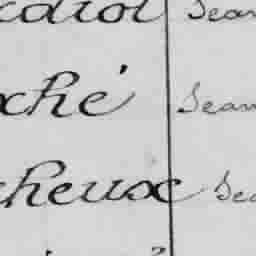 cdiol Jean
xhé Jean
cheux Jea